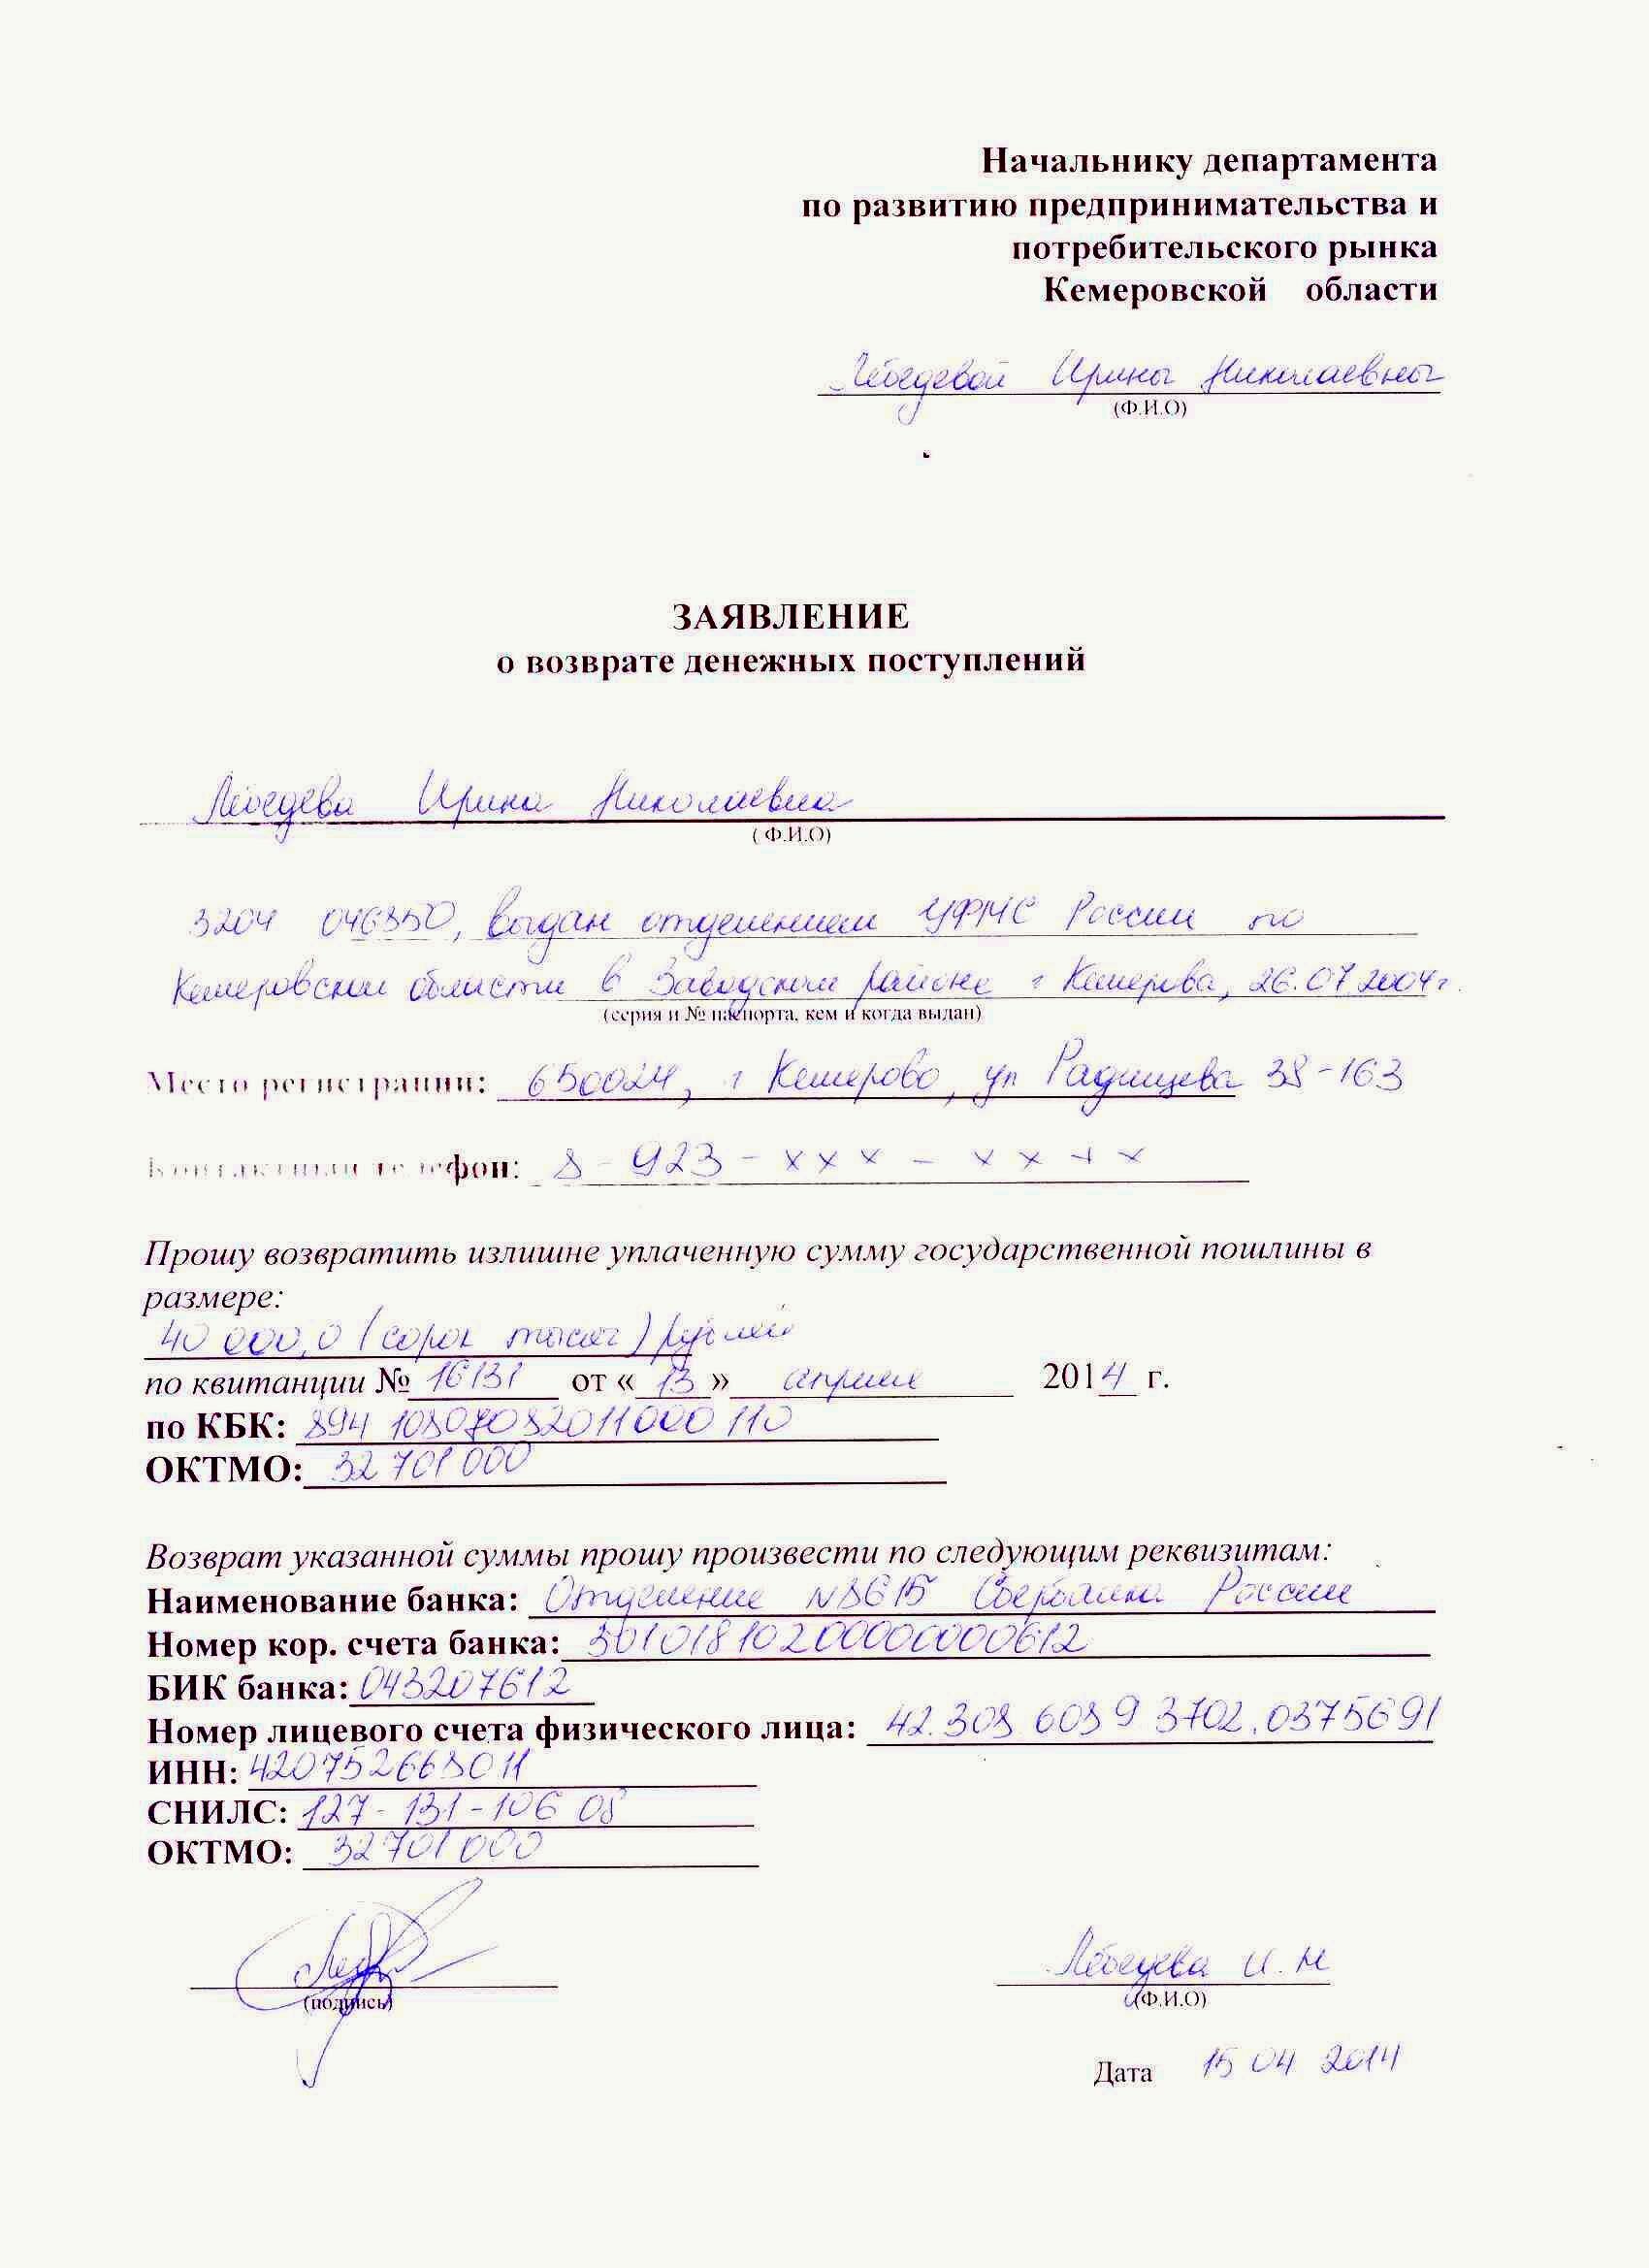 Начальнику департамента
по развитию предпринимательства и
потребительского рынка
Кемеровской области
Лебедевой Ирины Николаевны
(Ф.И.О)
ЗАЯВЛЕНИЕ
о возврате денежных поступлений
Лебедева Ирина Николаевна
( Ф.И.О)
3204 046350, выдан отделением УФМС России по
Кемеровской области в Заводском районе г Кемерова, 26.07.2004г.
(серия и № паспорта, кем и когда выдан)
Место регистрации: 650024, г Кемерово, ул Радищева 38-163
Контактный телефон: 8-923-xxx-xxxx
Прошу возвратить излишне уплаченную сумму государственной пошлины в
размере:
40 000,0 (сорок тысяч) рублей
по квитанции № 16131 от « 13 » апреля 2014 г.
по КБК: 894 10807082011000 110
ОКТМО: 32 701 000
Возврат указанной суммы прошу произвести по следующим реквизитам:
Наименование банка: Отделение N8615 Сбербанка России
Номер кор. счета банка: 30101810200000000612
БИК банка: 043207612
Номер лицевого счета физического лица: 42.308 608 9 3702.0375691
ИНН: 420752668011
СНИЛС: 127-131-106 08
ОКТМО: 32701000
(подпись)
Лебедева И.Н
(Ф.И.О)
Дата 15 04 2014